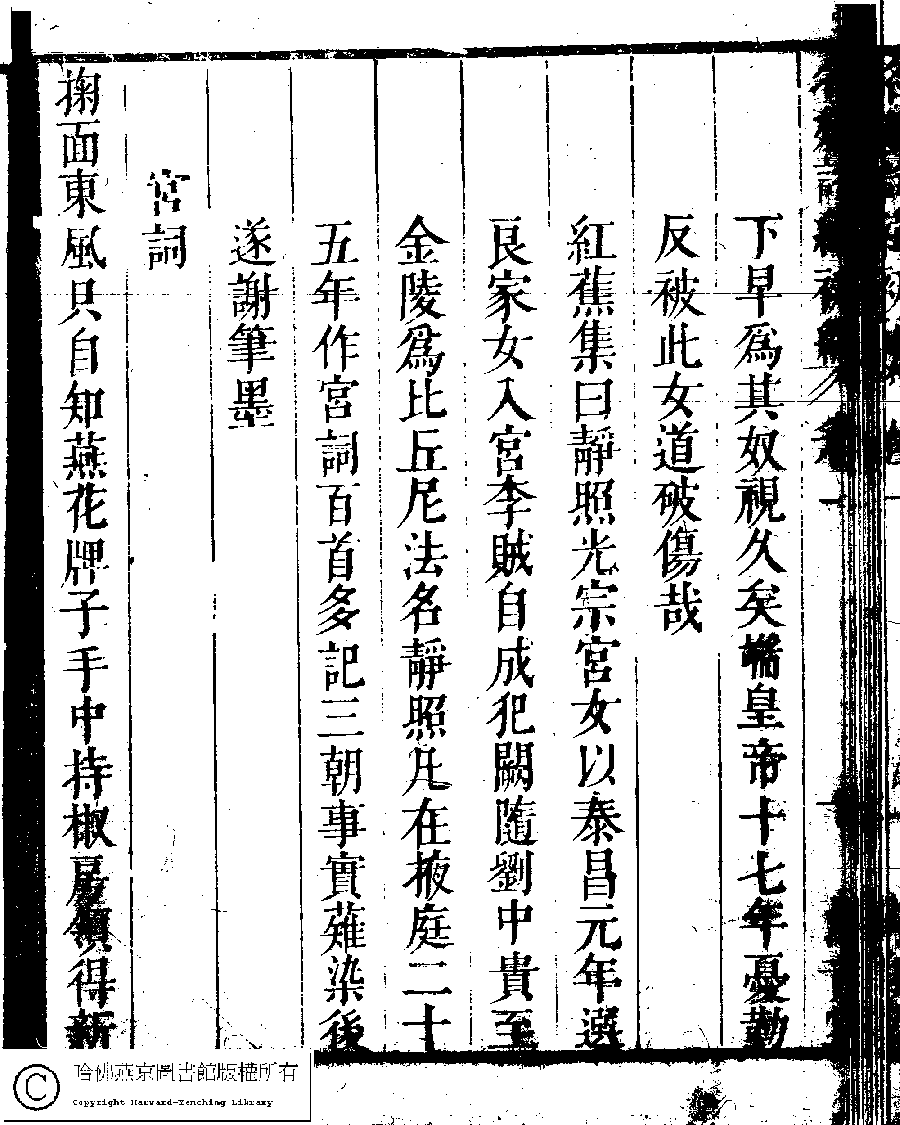 下早爲其奴視久矣嗤皇帝十七年憂勤
反被此女道破傷哉
紅蕉集曰靜照光宗宮女以泰昌元年選
良家女入宮李賊自成犯闕隨劉中貴至
金陵爲比丘尼法名靜照凡在掖庭二十
五年作宮詞百首多記三朝事實薙染後
遂謝筆墨
宮詞
掬面東風只自知燕花牌子手中持椒房領得新
哈佛燕京圖書館版權所有
Copyright Harvard-Yenching Library